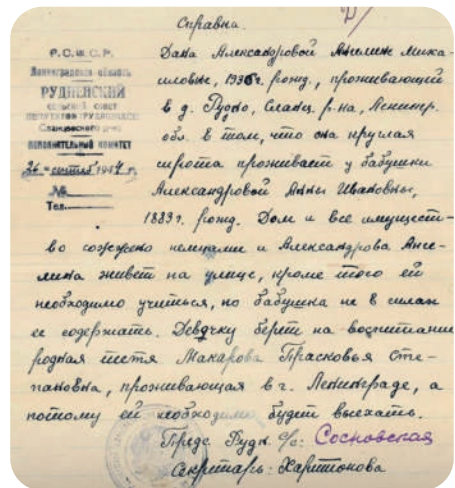 Справка.
Р.С.Ф.С.Р.
Ленинградская область
РУДНЕНСКИЙ
СЕЛЬСКИЙ СОВЕТ
ДЕПУТАТОВ ТРУДЯЩИХСЯ
Сланцевского р-на
ИСПОЛНИТЕЛЬНЫЙ КОМИТЕТ
26 сентяб 1944 г.
№
Тел.
Дана Александровой Ангелине Миха-
иловне, 1936 г. рожд., проживающей
в д. Рудно, Сланц. р-на, Ленингр.
обл. в том, что она круглая
сирота проживает у бабушки
Александровой Анны Ивановны,
1883 г. рожд. Дом и все имущест-
во сожжено немцами и Александрова Анге-
лина живет на улице, кроме того ей
необходимо учиться, но бабушка не в силах
ее содержать. Девочку берет на воспитание
родная тетя Макарова Прасковья Сте-
пановна, проживающая в г. Ленинграде, а
потому ей необходимо будет выехать.
Предс. Рудн. с/с: Сосновская
Секретарь: Харитонова